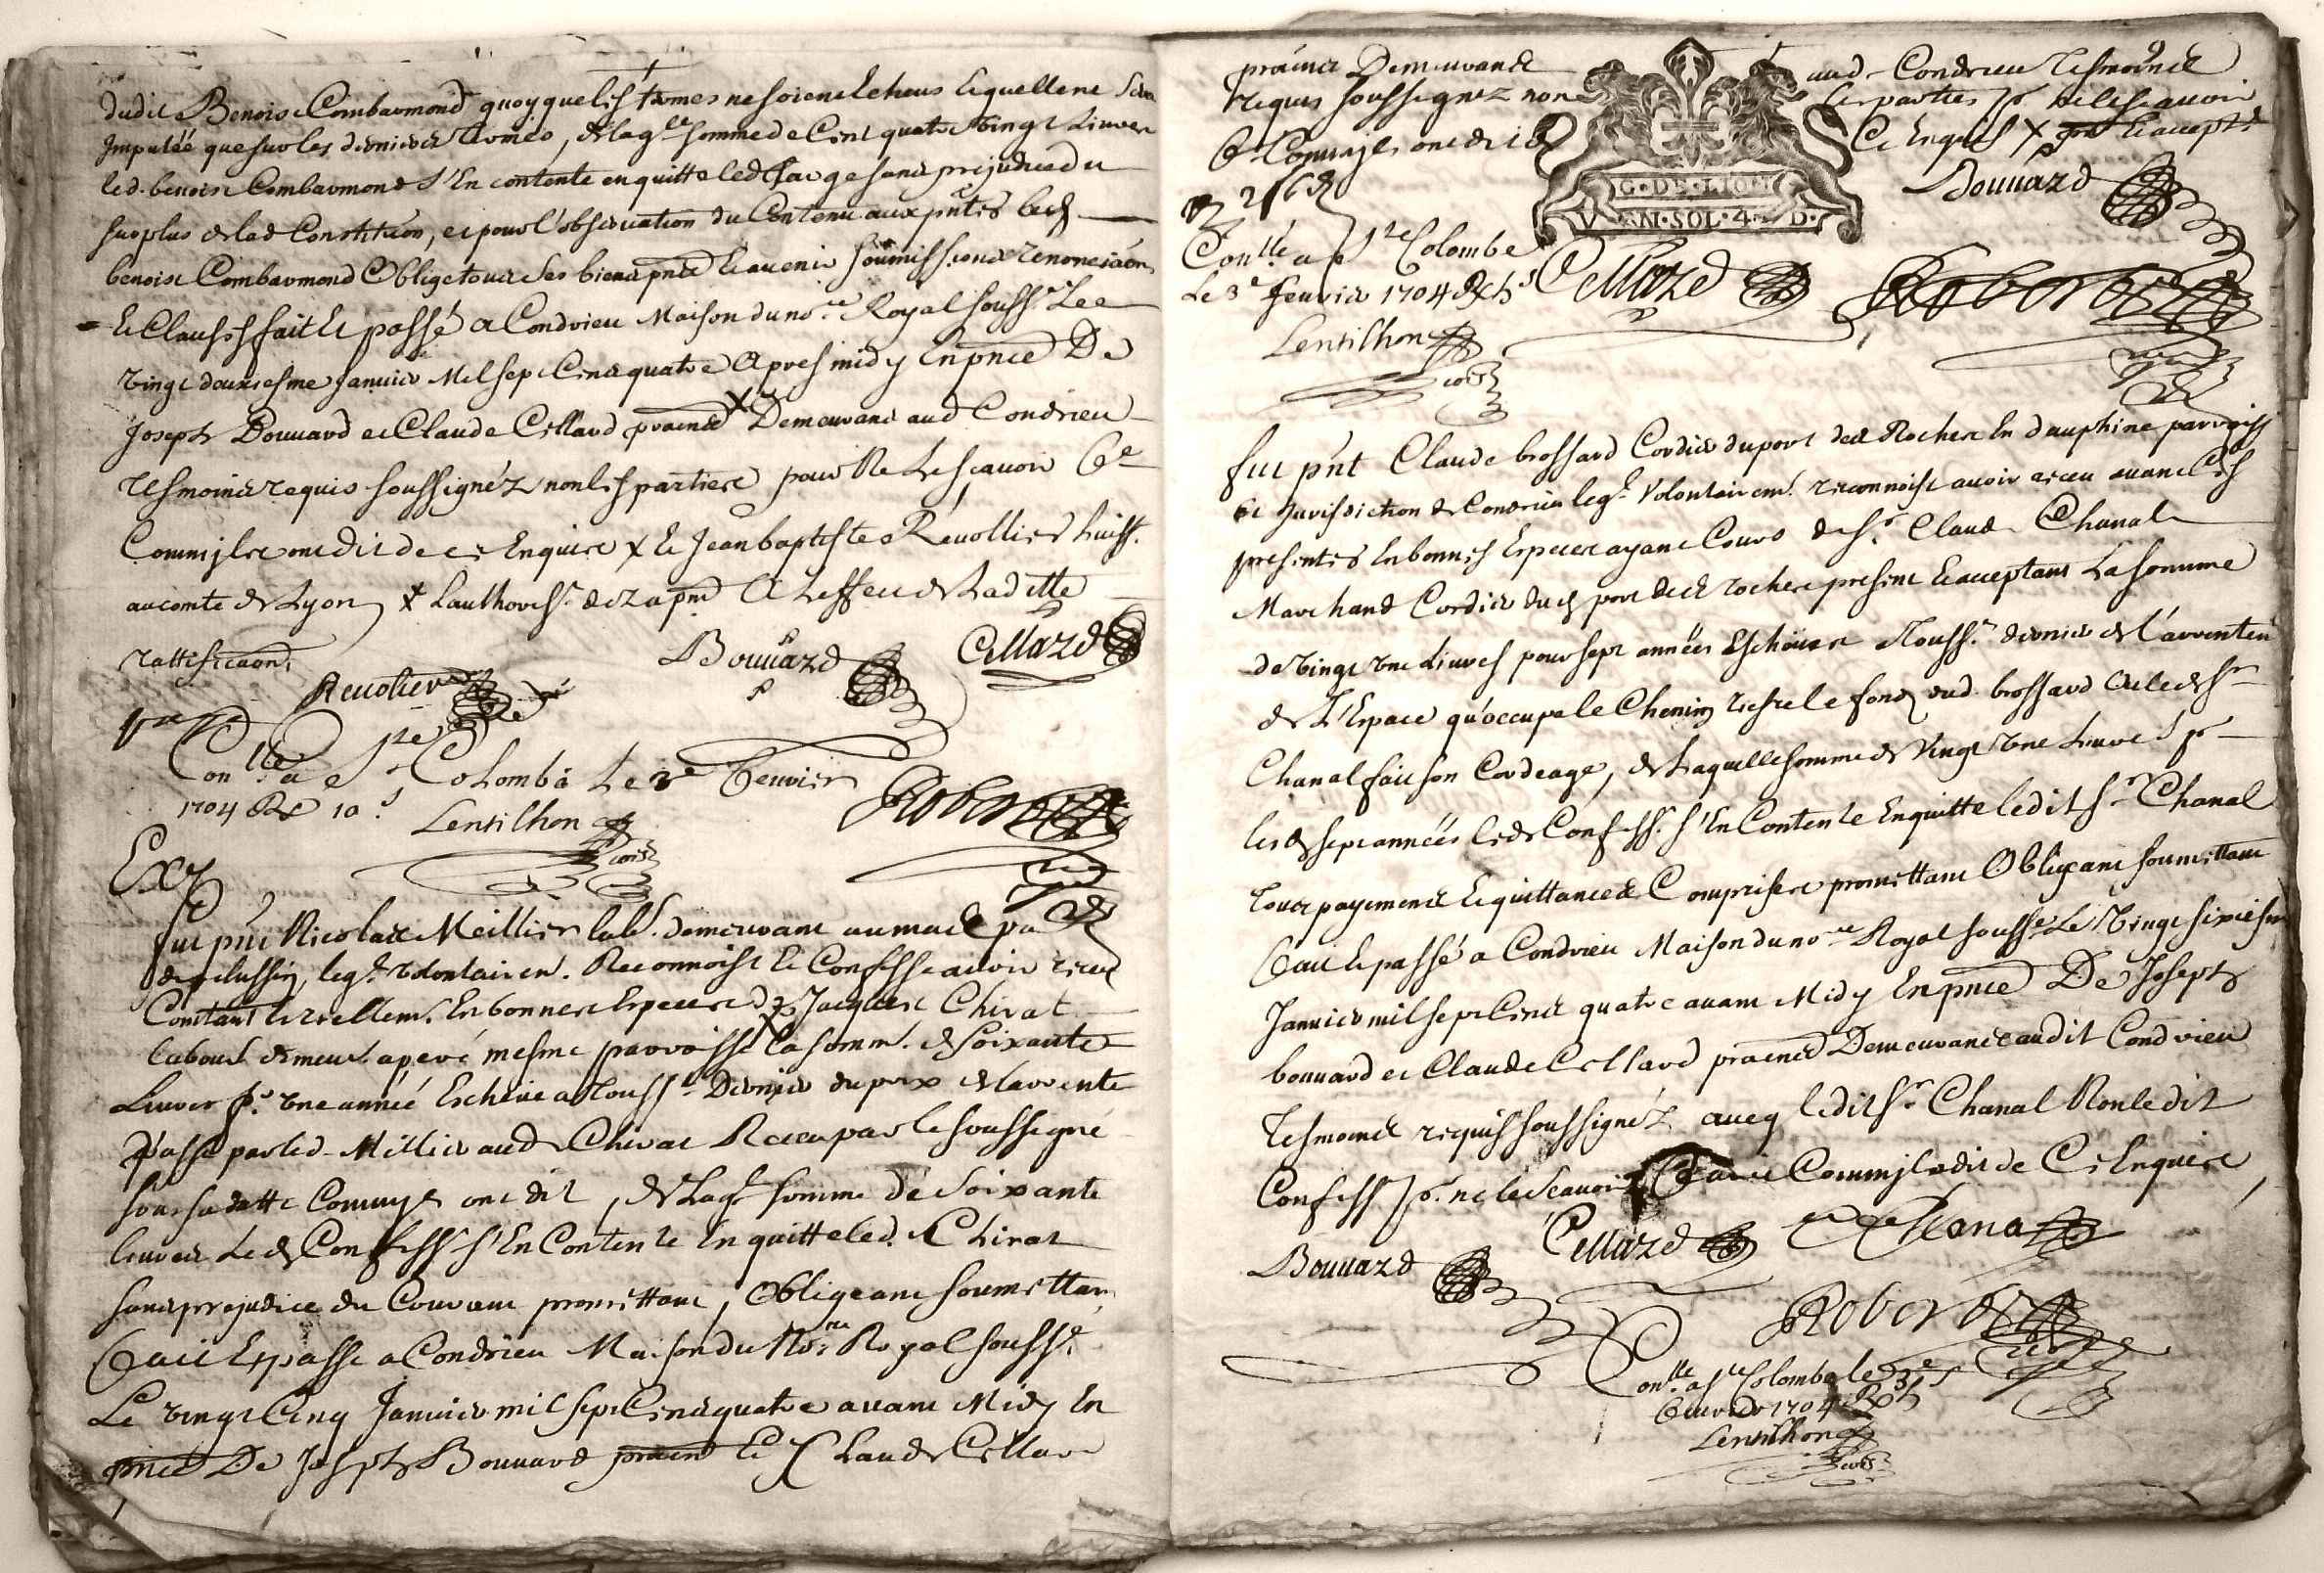 dudit Benoist Combarmond quoyque les termes ne soient Eschus Lequelle ne sera
Imputéé que sur les derniers termes, de lag.lle somme de Cent quatre vingt Livres
led. benoist Combarmond s'En contente en quitte led farge sans prejudice du
surplus de lad Constitution, et pour l'observation du Contenu aux pñtes led
benoist Combarmond Oblige tous ses biens pñts Et avenir soumissions renonciaõns
Et Clauses fait Et passé a Condrieu Maison du no.re Royal souss.é Le
vingt deuxiesme Janvier Mil sept Cents quatre Apres midy En pñce De
Joseph Bouuard et Claude Cellard praticiens Demeurans aud Condrieu
tesmoins requis soussignéz non les parties pour Ne Le sçavoir Ce
Commils ont dit de ce Enquis X Et Jean baptiste Reuollier huiss.
au comte de Lyon X L'effect de Laditte
rattificaõn
Reuolier
Bouuard
Cellard
Con.llé a S.te Colombe Le 3e feuvrier
1704 Re 10 s
Lentilhon
Robert
Exp
fut pñt Nicolas Meillier lab.r demeurant au mas pa
de pelussin, leq.l volontairem. Reconnoist Et Confesse avoir receu
Contant Et reellem. En bonnes Especes de Jacques Chirat
labour. demeur. a mesme parroisse La somm. de soixante
Livres p.r une année Escheüe a Touss.t Dernier du prix de l'arrente
passé par led. Meillier aud Chirat Receu par le soussigné
sous sa datte Commils ont dit, de Lag.lle somme de Soixante
livres Led Confess. s'En Contente En quitte led. Chirat
sans prejudice du Courant promettant, Obligeant soumettant
fait Et passé a Condrieu Maison du No.re Royal souss.é
Le vingt Cinq Janvier mil sept Cents quatre avant Midy En
pñce De Joseph Bouuard Et Claude Cellard
Demeurants aud Condrieu Tesmoins
requis soussignez non les parties p.r ne le sçavoir
Ce Commils ont dit De Ce Enquis X Et accept.
G·DE·LION
V N·SOL·4·D·
Bouuard
Con.llé a S.te Colombe
Le 3e feuvrier 1704
Lentilhon
Cellard
Robert
fut pñt Claude brossard Cordier du port des Roches En dauphine parroisse
Et Jurisdiction de Condrieu leq.l Volontairem.t reconnoist avoir receu avant Ces
presentes En bonnes Especes ayant Cours de S.r Claude Chanal
Marchand Cordier dud port des roches present Et acceptant La somme
de vingt une Livres pour sept années Escheües a Touss.t dernier de l'arrentem
de L'Espace qu'occupe le Chemin le fond dud brossard led S.r
Chanal fait son Cordeage, de Laquelle somme de Vingt une Livres p.r
lesd sept années led Confess. s'En Contente En quitte ledit S.r Chanal
tous payements Et quittances Comprises promettant Obligeant soumettant
fait Et passé a Condrieu Maison du no.re Royal souss.é Le Vingt sixiesme
Janvier mil sept Cents quatre avant Midy En pñce De Joseph
bouuard et Claude Cellard Demeurants audit Condrieu
Tesmoins requis soussignéz avecq ledit S.r Chanal Non ledit
Confess. p.r ne le sçavoir faire Commils a dit de Ce Enquis
Bouuard
Cellard
Chanal
Robert
Con.llé a S.te Colombe le 3e
feuvrier 1704
Lentilhon